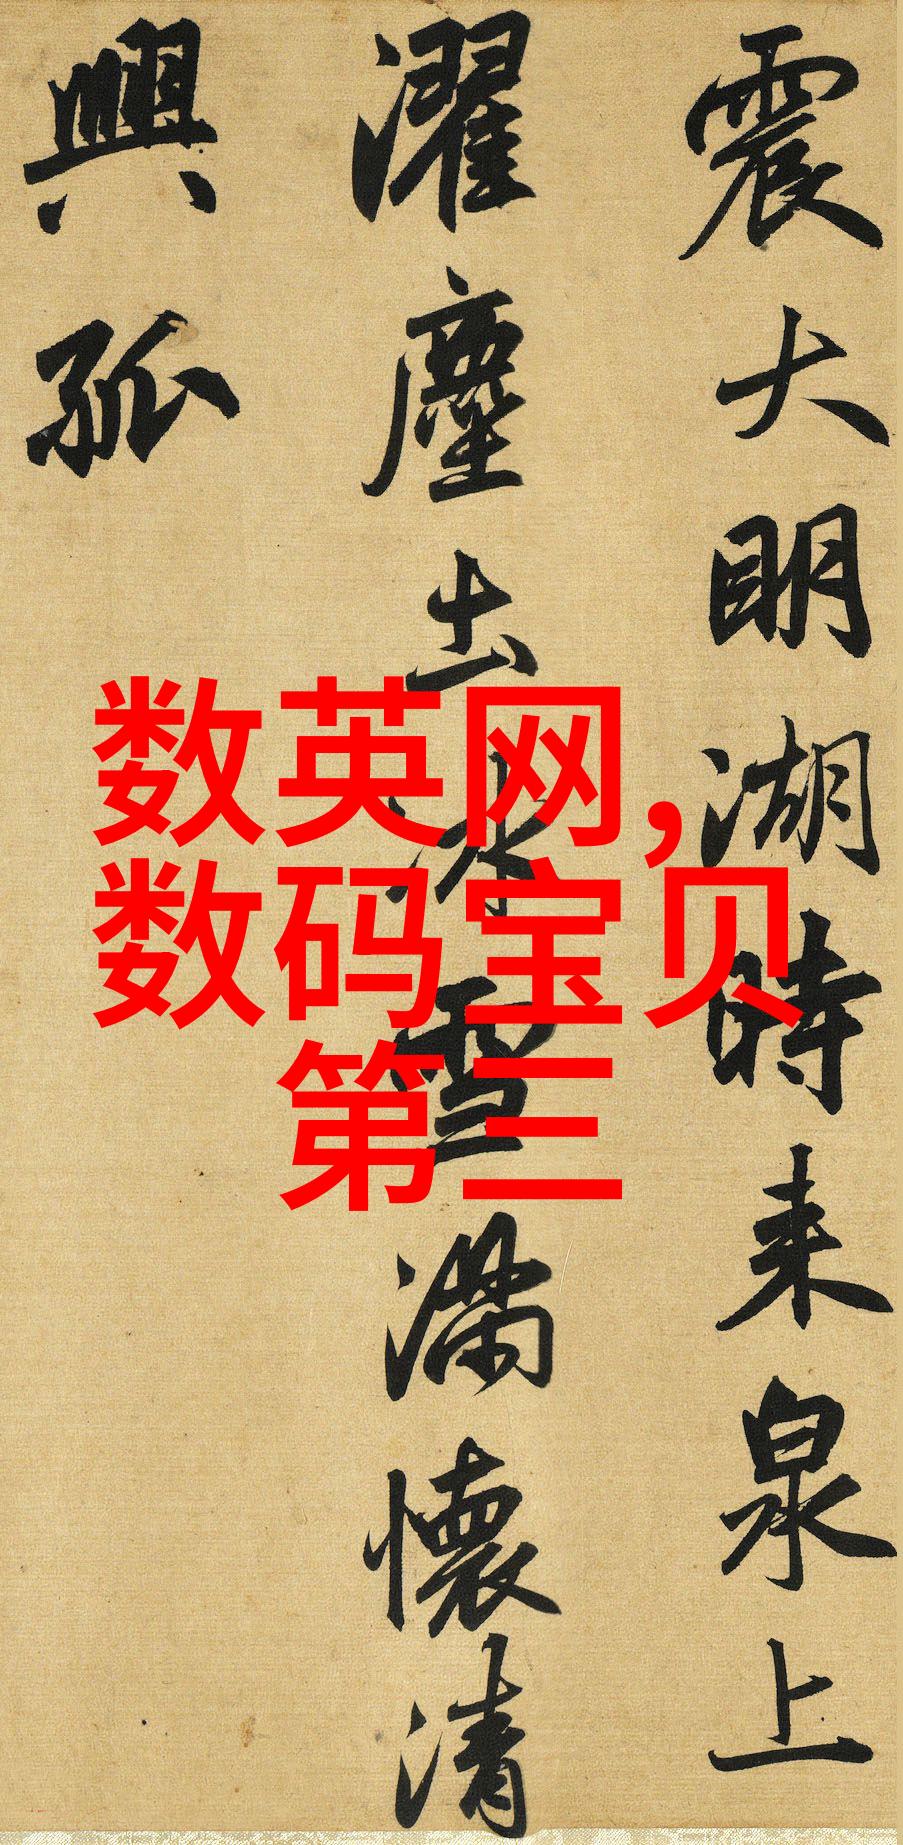 震大明湖時来泉上
濯塵土冰雪滿懷清
興孤
数英网,
数码宝贝
第三